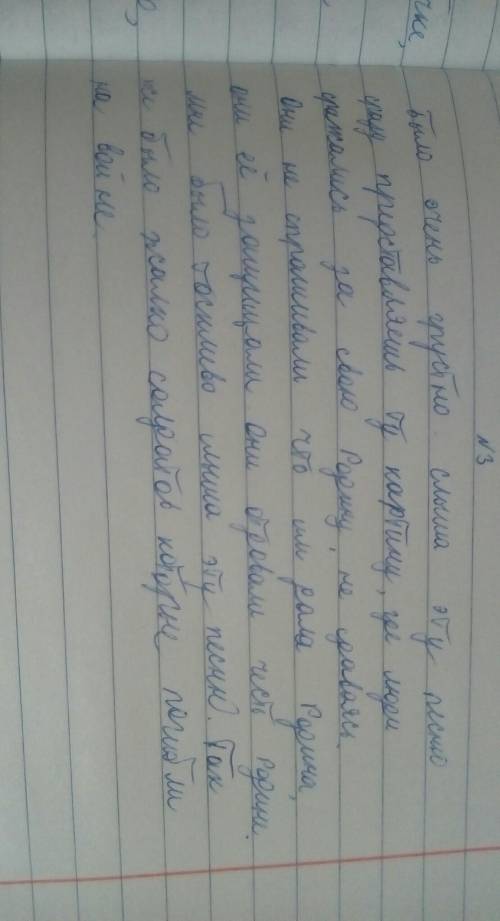 №3
Было очень грустно. слыша эту песню
сразу представляешь ту картину, где люди
сражались за свою Родину, не сдаваясь.
Они не спрашивали что им дала Родина,
они её защищали они отдовали честь Родине.
мне было тоскливо слыша эту песню. Так
же было жалко солдатов которые погибли
на войне.